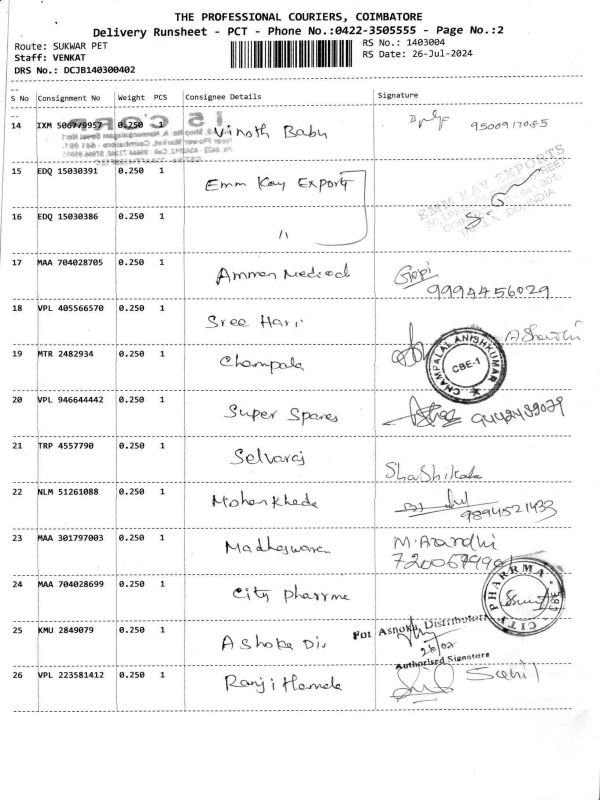 THE PROFESSIONAL COURIERS, COIMBATORE
Delivery Runsheet - PCT - Phone No.:0422-3505555 - Page No.:2
Route: SUKWAR PET
RS No.: 1403004
Staff: VENKAT
RS Date: 26-Jul-2024
DRS No.: DCJB140300402
S No Consignment No Weight PCS Consignee Details Signature
14 IXM 506779957 0.250 1 Vinoth Babu 9500917085
15 EDQ 15030391 0.250 1 Emm Kay Export
EMM KAY EXPORTS
16 EDQ 15030386 0.250 1 11
17 MAA 704028705 0.250 1 Amman Medical Gopi
9994456029
18 VPL 405566570 0.250 1 Sree Hari
19 MTR 2482934 0.250 1 Champala
CHAMPALAL ANISHKUMAR
CBE-1
20 VPL 946644442 0.250 1 Super Spares 9442489029
21 TRP 4557790 0.250 1 Selvaraj ShaShikala
22 NLM 51261088 0.250 1 Mohan Kheda 9894521433
23 MAA 301797003 0.250 1 Madheswaran M.Anandhi
24 MAA 704028699 0.250 1 City Pharrma
CITY PHARRMA CBE
25 KMU 2849079 0.250 1 Ashoka Dis
For Ashoka Distributors
Authorised Signature
26 VPL 223581412 0.250 1 Ranji Hamela Sahil